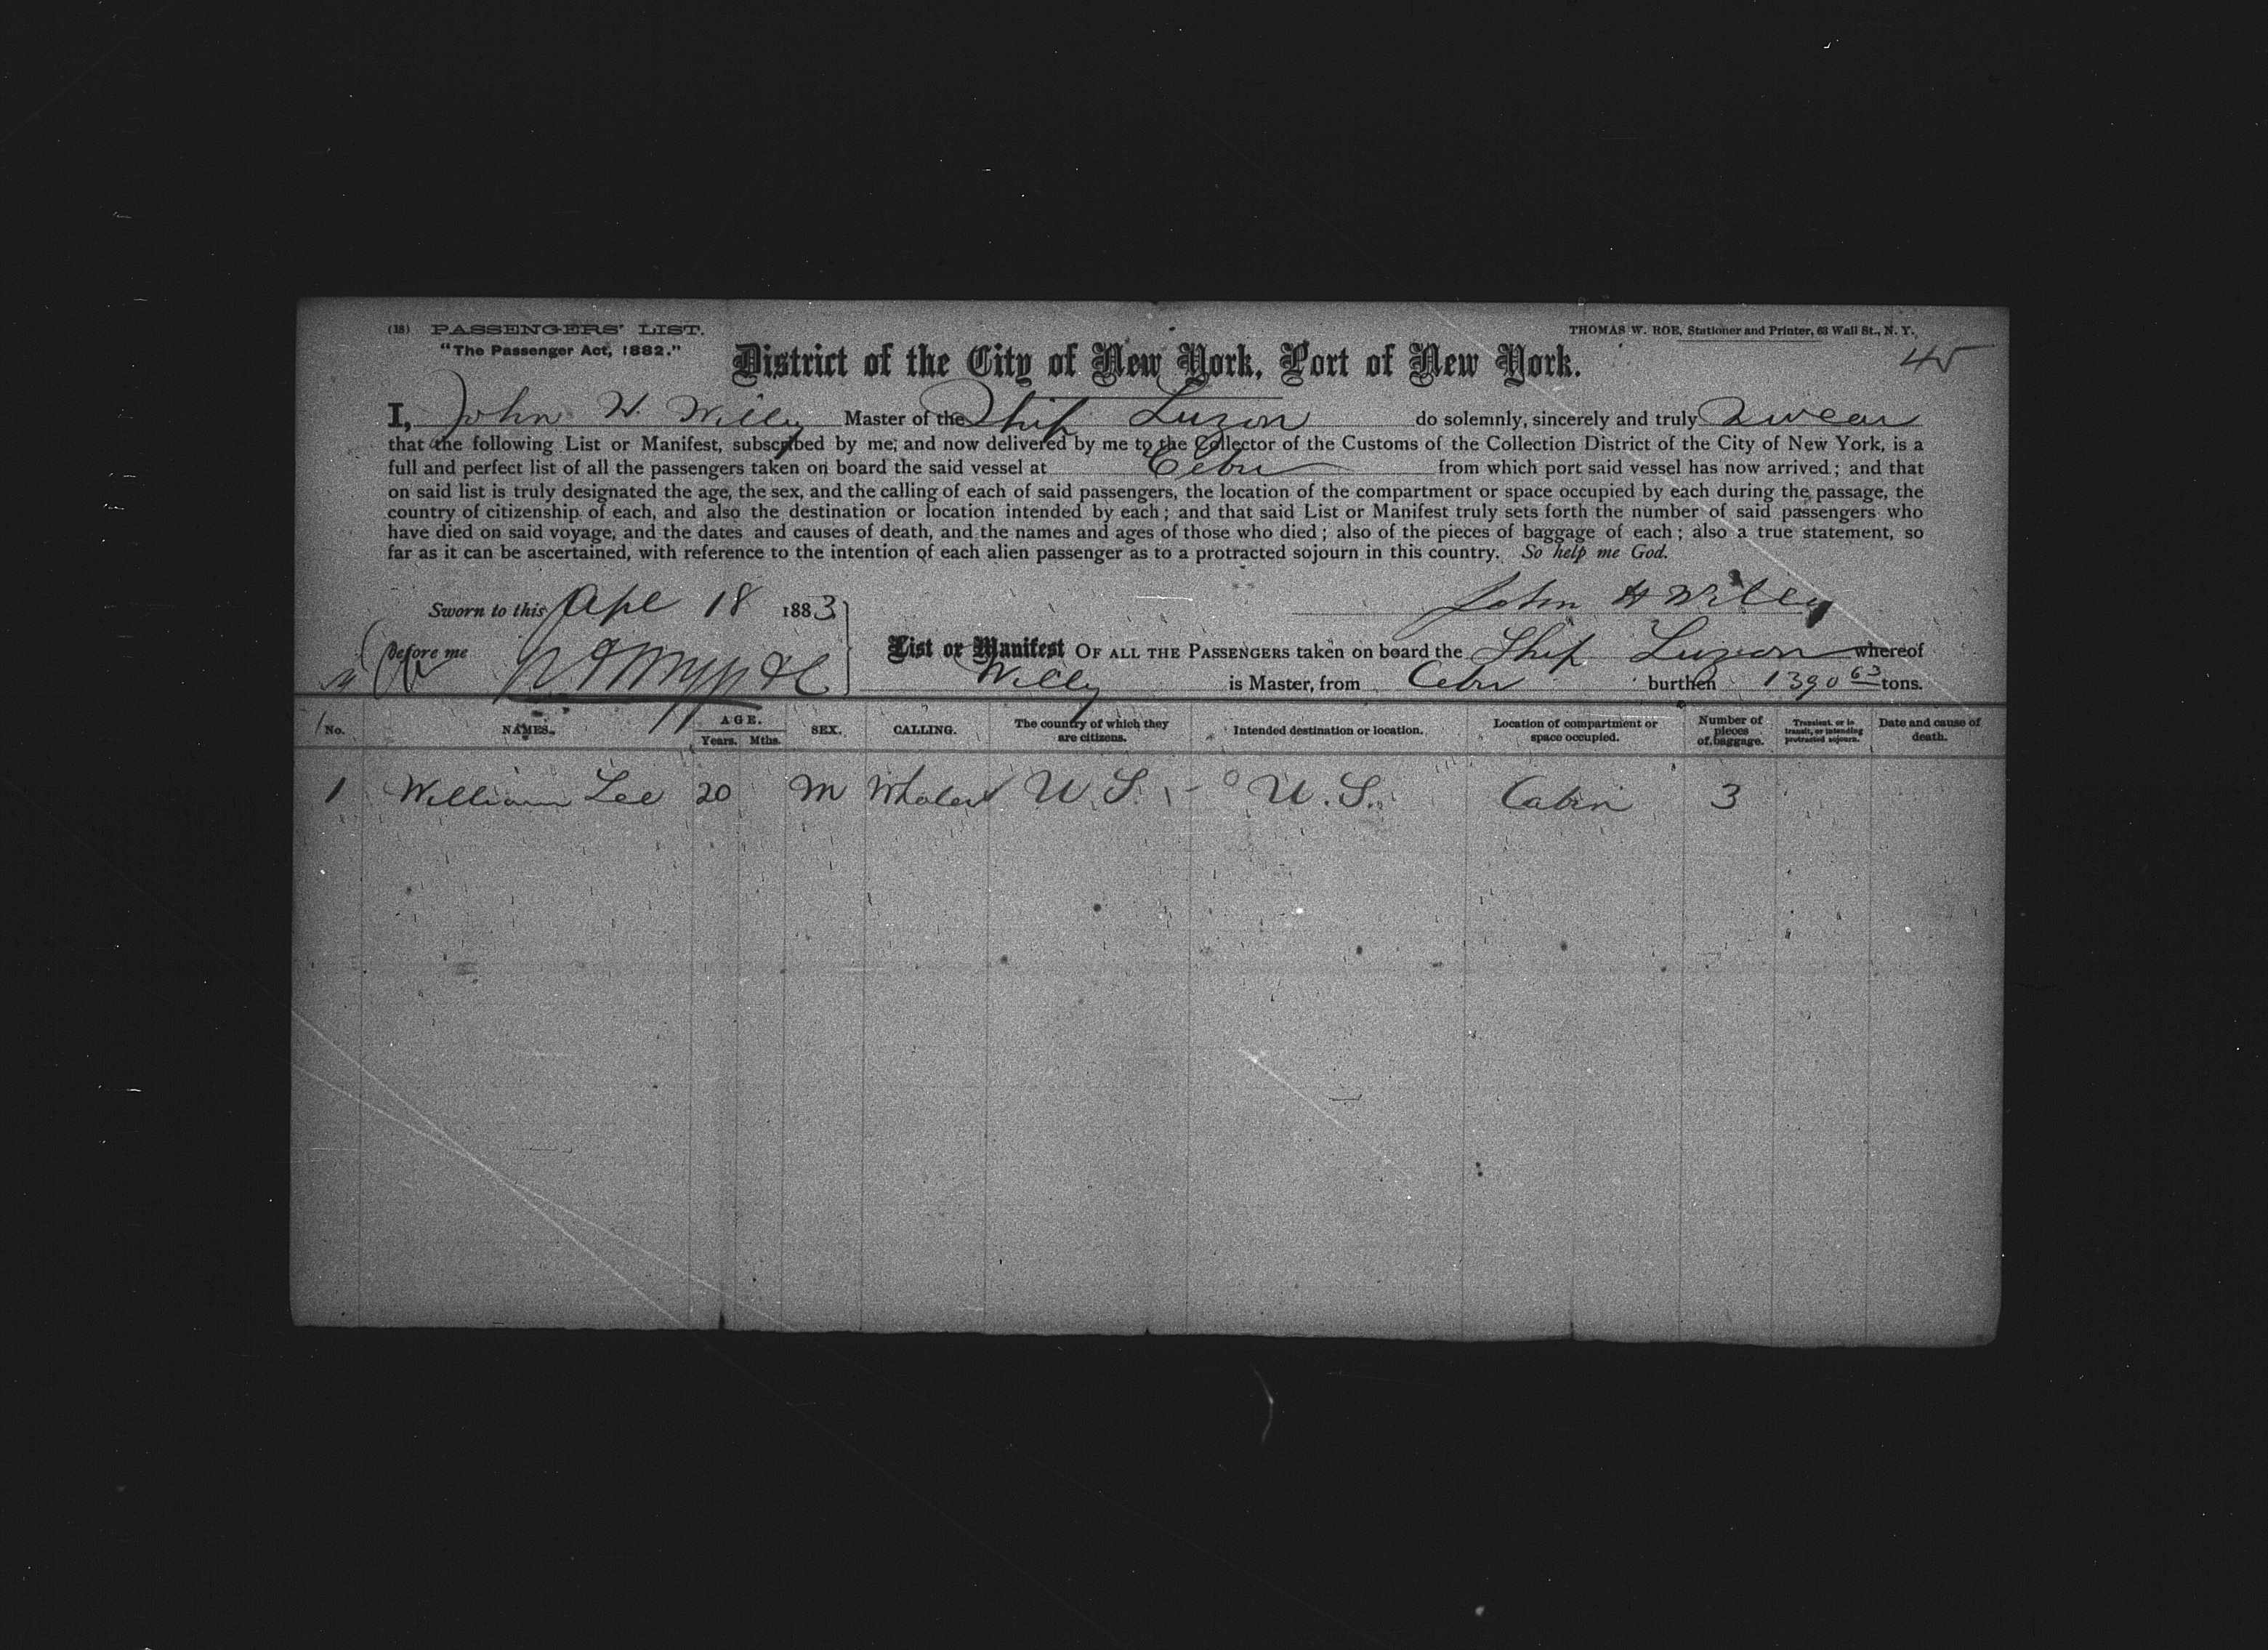 (18) PASSENGERS' LIST.
"The Passenger Act, 1882."
THOMAS W. ROE, Stationer and Printer, 63 Wall St., N. Y.
45
District of the City of New York, Port of New York.
I, John H. Willy Master of the Ship Luzon do solemnly, sincerely and truly Swear
that the following List or Manifest, subscribed by me, and now delivered by me to the Collector of the Customs of the Collection District of the City of New York, is a
full and perfect list of all the passengers taken on board the said vessel at Cebu from which port said vessel has now arrived; and that
on said list is truly designated the age, the sex, and the calling of each of said passengers, the location of the compartment or space occupied by each during the passage, the
country of citizenship of each, and also the destination or location intended by each; and that said List or Manifest truly sets forth the number of said passengers who
have died on said voyage, and the dates and causes of death, and the names and ages of those who died; also of the pieces of baggage of each; also a true statement, so
far as it can be ascertained, with reference to the intention of each alien passenger as to a protracted sojourn in this country. So help me God.
Sworn to this Apl 18 1883
John H Willy
Before me
List or Manifest OF ALL THE PASSENGERS taken on board the Ship Luzon whereof
Willy is Master, from Cebu burthen 1390 63 tons.
No. NAMES. AGE. Years. Mths. SEX. CALLING. The country of which they are citizens. Intended destination or location. Location of compartment or space occupied. Number of pieces of baggage. Transient, or in transit, or intending protracted sojourn. Date and cause of death.
1 William Lee 20 M Whaler U.S. U.S. Cabin 3